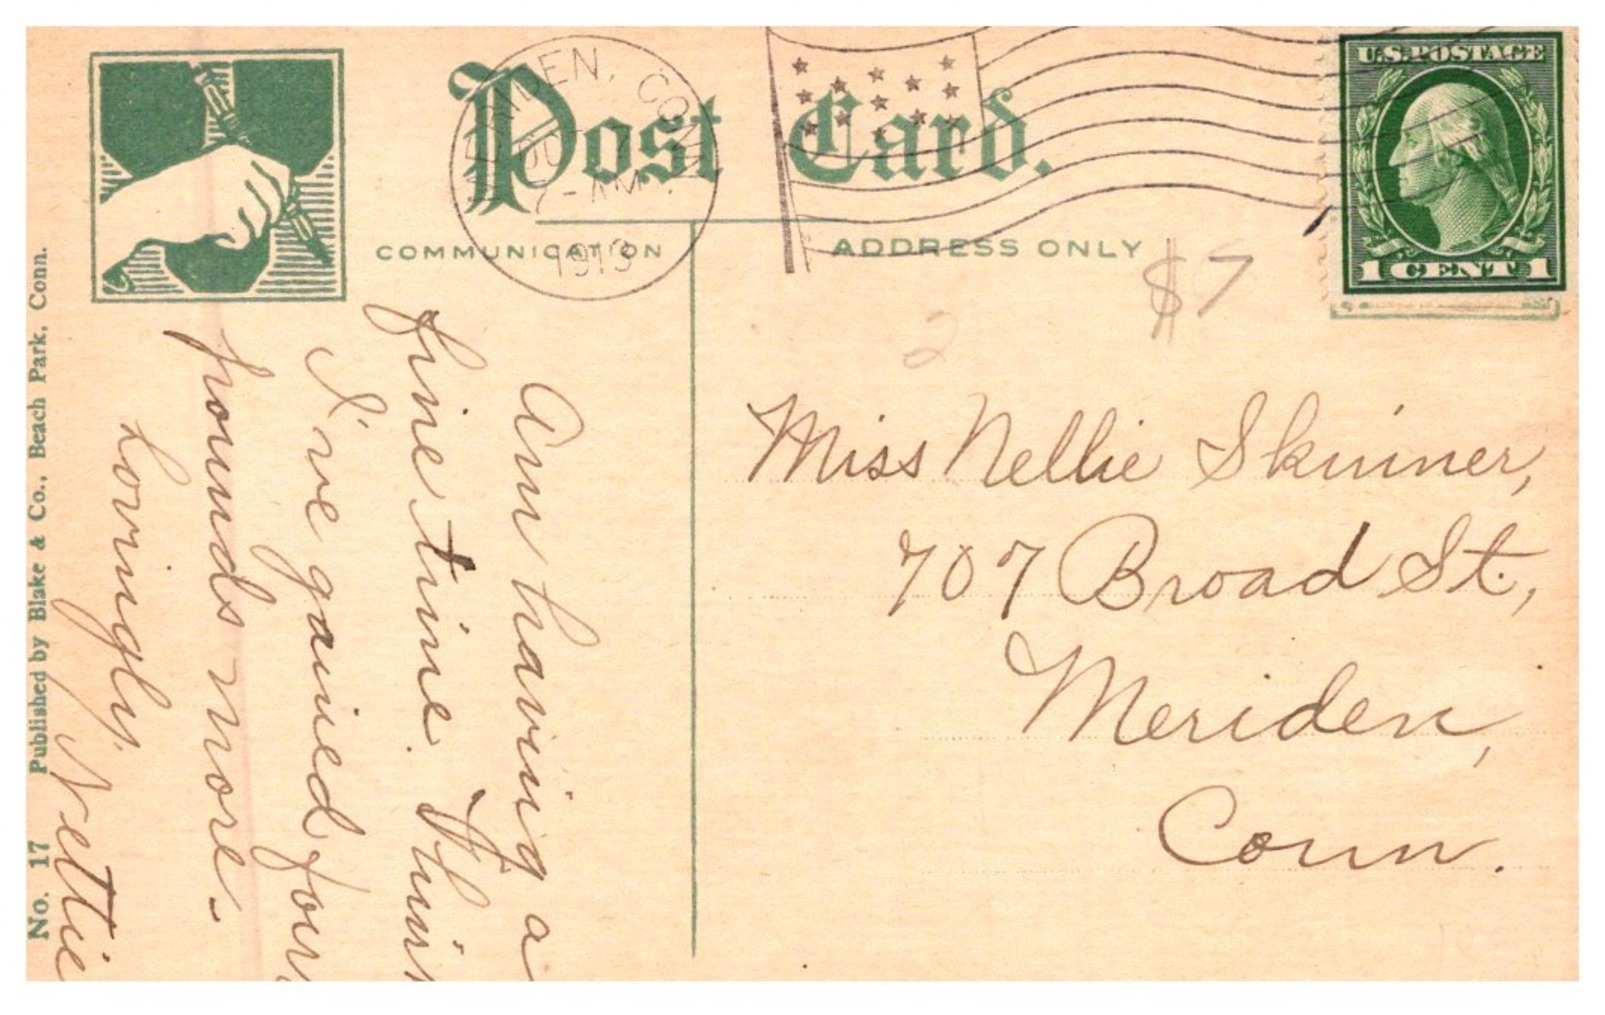 Post Card.
U.S. POSTAGE
1 CENT 1
CONN
7-AM
1913
COMMUNICATION
ADDRESS ONLY
$7
2
Am having a
fine time. Think
I've gained four
pounds more.
Lovingly,
Nettie
Miss Nellie Skinner,
707 Broad St.,
Meriden,
Conn.
No. 17 Published by Blake & Co., Beach Park, Conn.